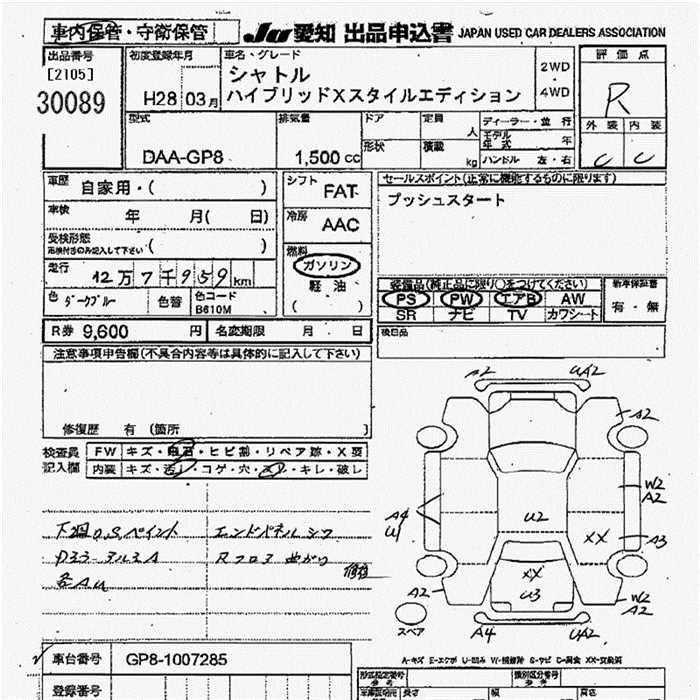 車内保管・守衛保管
JU 愛知 出品申込書 JAPAN USED CAR DEALERS ASSOCIATION
出品番号
[2105]
30089
初度登録年月
H28 03月
車名・グレード
シャトル
ハイブリッドXスタイルエディション
2WD
4WD
評価点
R
外装 内装
C C
型式
DAA-GP8
排気量
1,500 cc
ドア
定員
人
形状
積載
kg
ディーラー・並行
モデル年式 年
ハンドル 左・右
車歴
自家用・( )
車検 年 月( 日)
受検形態
( )
走行
12万7千959km
色 ダークブルー
色替
色コード
B610M
シフト
FAT
冷房
AAC
燃料
ガソリン
軽油
( )
セールスポイント(正常に機能するものに限ります)
プッシュスタート
装備品(純正品に限り○をつけてください)
PS PW エアB AW
SR ナビ TV カワシート
新車保証書
有・無
後日品
R券 9,600 円
名変期限 月 日
注意事項申告欄(不具合内容等は具体的に記入して下さい)
修復歴 有 (箇所 )
検査員
記入欄
FW キズ・飛石・ヒビ割・リペア跡・X要
内装 キズ・汚レ・コゲ・穴・スレ・キレ・破レ
下廻り.S.ペイント
エンドパネルシワ
Rフロア曲がり
各AU
A2 UA2
A2
W2
A2
A4
U1
U2
XX
A3
XX
U3
A2
W2
A2
スペア
A4
UA2
A-キズ E-エクボ U-凹み W-補修跡 S-サビ C-腐食 XX-交換済
車台番号
GP8-1007285
登録番号
型式指定番号
類別区分番号
長さ
幅
高さ